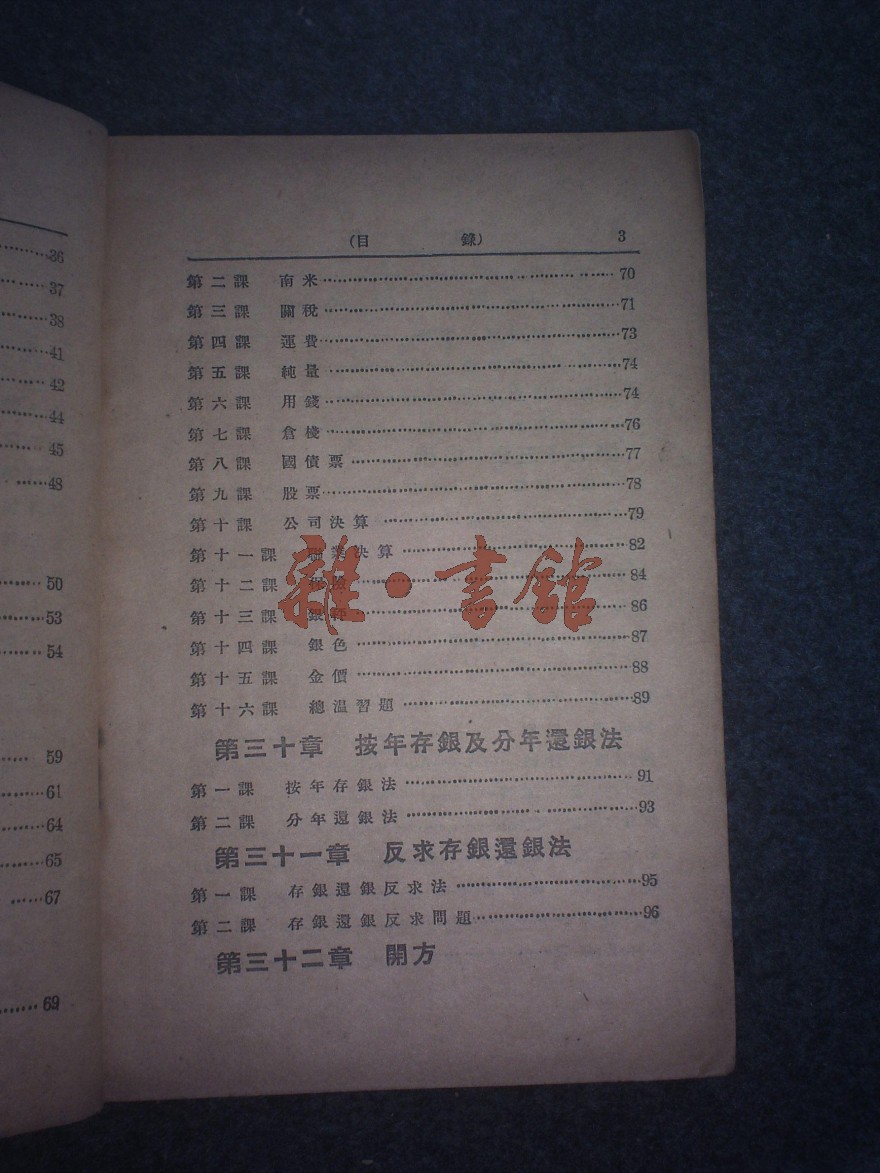 36
37
38
41
42
44
45
48
50
53
54
59
61
64
65
67
69
(目 錄) 3
第二課 南米 70
第三課 關稅 71
第四課 運費 73
第五課 純量 74
第六課 用錢 74
第七課 倉棧 76
第八課 國債票 77
第九課 股票 78
第十課 公司決算 79
第十一課 聯業決算 82
第十二課 保險 84
第十三課 銀 86
第十四課 銀色 87
第十五課 金價 88
第十六課 總温習題 89
第三十章 按年存銀及分年還銀法
第一課 按年存銀法 91
第二課 分年還銀法 93
第三十一章 反求存銀還銀法
第一課 存銀還銀反求法 95
第二課 存銀還銀反求問題 96
第三十二章 開方
雜·書館